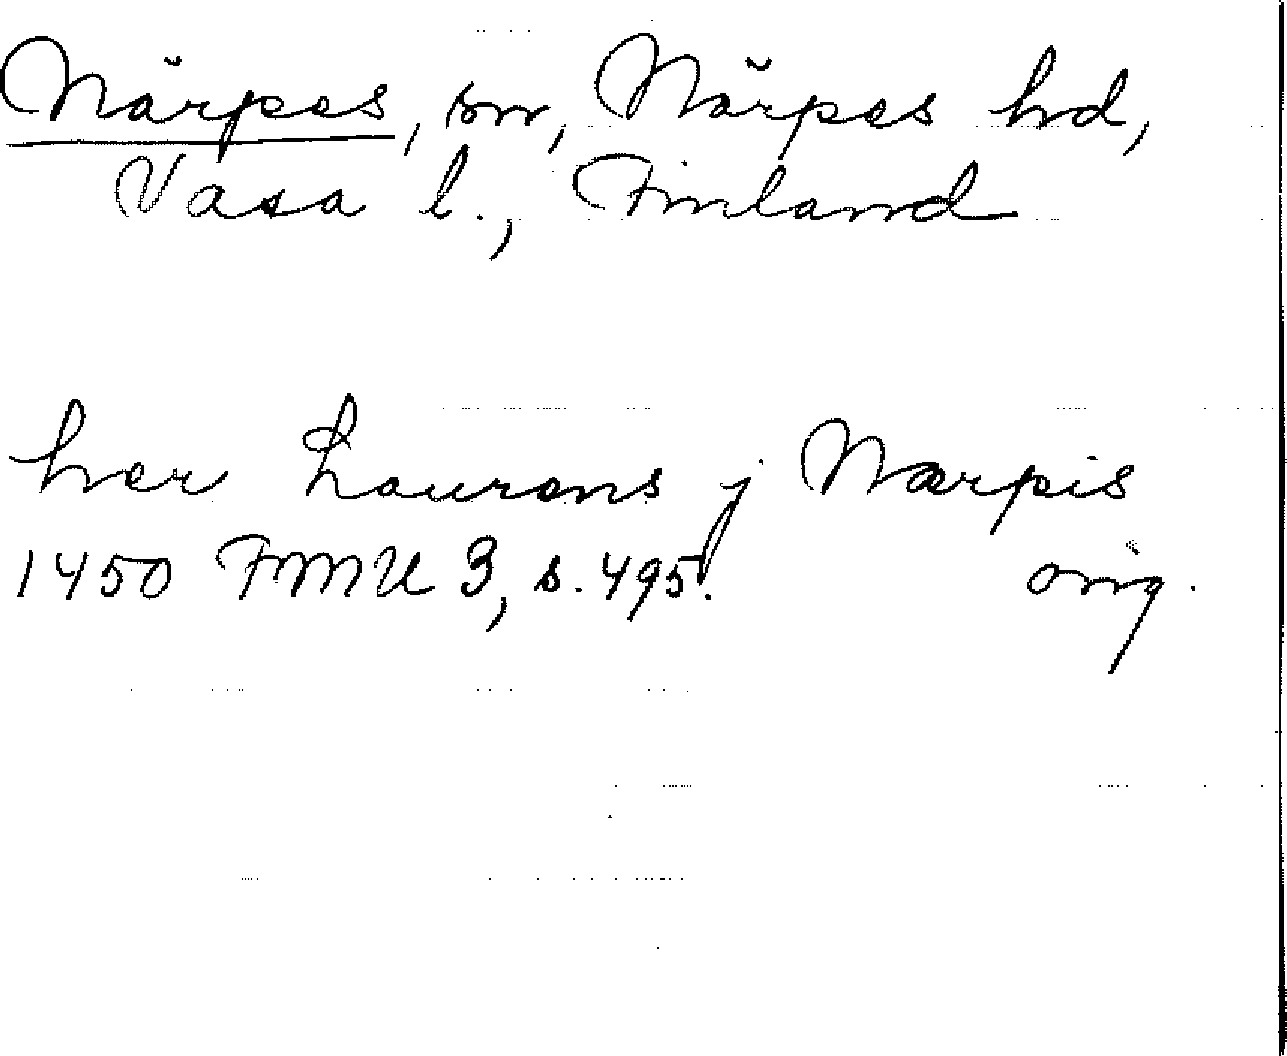 Närpes, sn, Närpes hd,
Vasa l., Finland
her Laurens j Nærpis
1450 FMU 3, s. 495. orig.